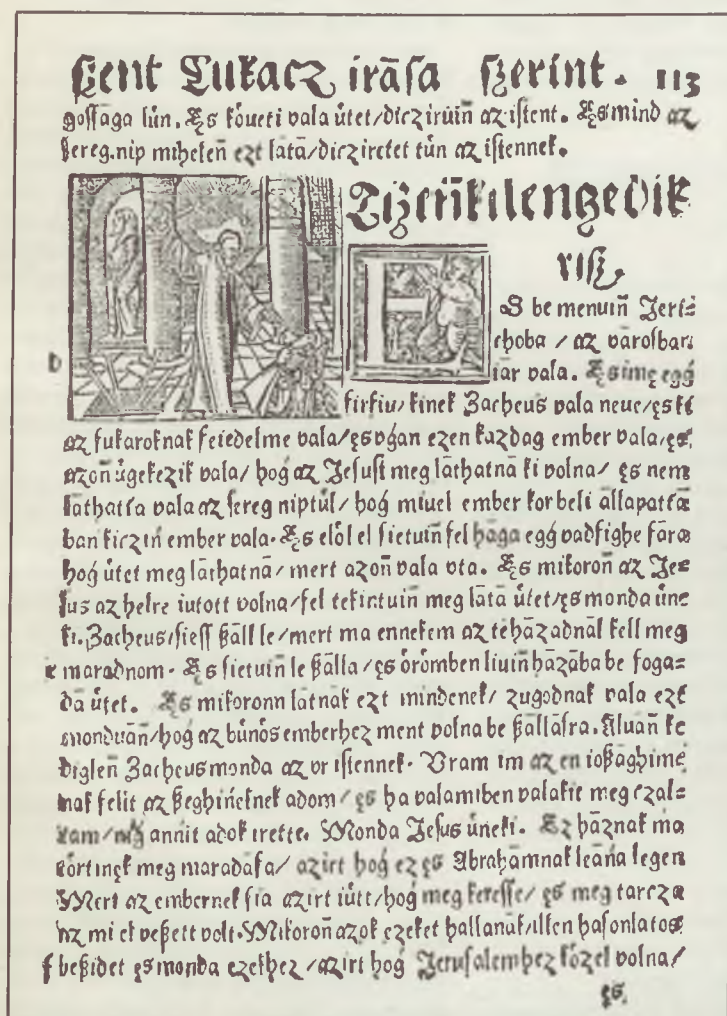 ſzent Lukacz iräſa ſzerint. 113
goſſaga lün. Ęs köueti vala ütet/dicziruïn az iſtent. Ęs mind az
ſereg nip miheleñ ezt lätä/dicziretet tün az iſtennek.
Tizeñkilengedik
riſz.
ES be menuïñ Jeri⸗
choba / az väroſban
iär vala. Ęs imę egģ
b
firfiu/ kinek Zacheus vala neue/ęs ki
az fukaroknak feiedelme vala/ęs vģan ezen kazdag ember vala/ęs
azoñ ügekezik vala/ hoģ az Jeſuſt meg läthatnä ki volna/ ęs nem
läthatía vala az ſereg niptül/ hoģ miuel ember korbeli ällapattä
ban kicziń ember vala. Ęs elöl el ſietuïñ fel häga egģ vadfighe fära
hoģ ütet meg läthatnä/ mert azoñ vala vta. Ęs mikoroñ az Je⸗
ſus az helre iutott volna/fel tekintuïn meg lätä ütet/ęs monda üne
ki. Zacheus/ſieſſ ßäll le/mert ma ennekem az te häzadnäl kell meg
e maradnom. Ęs ſietuïñ le ßälla/ęs örömben liuïñ häzäba be foga⸗
dä ütet. Ęs mikoronn latnak ezt mindenek/ zugodnak vala ezt
monduäñ/hoģ az bünös emberhez ment volna be ßälläſra. Aluañ ke
diglen Zacheus monda az vr iſtennek. Vram im az en ioßäghime
nak felit az ßeghińeknek adom/ ęs ha valamiben valakit meg czal⸗
tam/ niģ annit adok irette. Monda Jeſus üneki. Ez häznak ma
törtinęk meg maradäſa/ azirt hoģ ez ęs Abrahämnak leäńa legen
Mert az embernek fia azirt iütt/hoģ meg kereſſe/ ęs meg tarcza
az mi el veßett volt. Mikoroñ azok ezeket hallanäk/illen haſonlatos
f beßidet ęs monda ezekhez/azirt hoģ Jeruſalemhez közel volna/
ęs